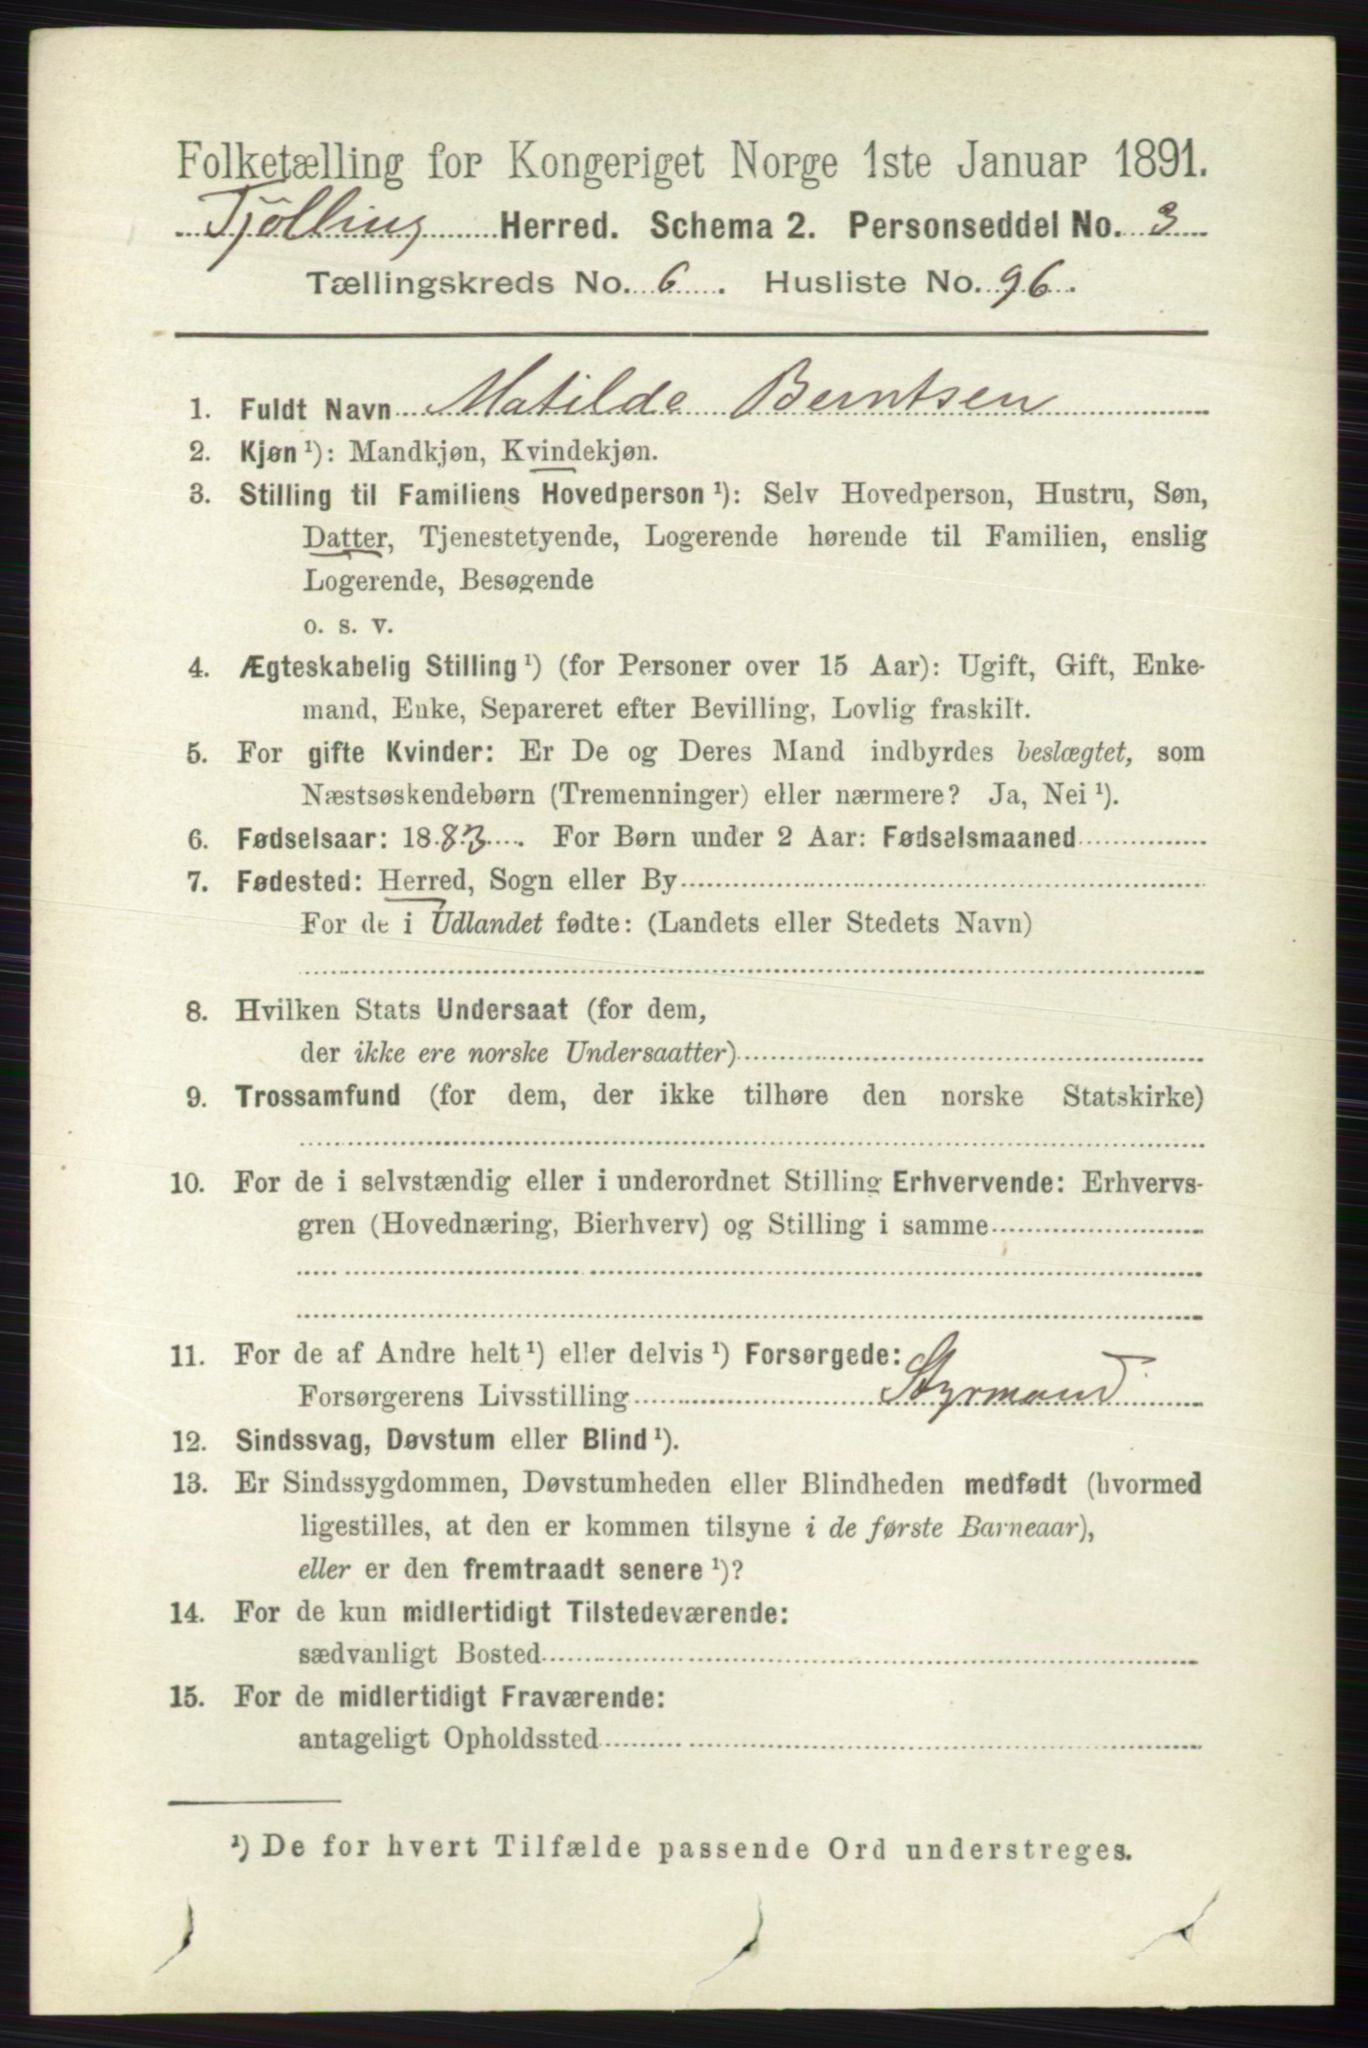 Folketælling for Kongeriget Norge 1ste Januar 1891.
Tjølling Herred. Schema 2. Personseddel No. 3
Tællingskreds No. 6. Husliste No. 96.
1. Fuldt Navn Matilde Berntsen
2. Kjøn ¹): Mandkjøn, Kvindekjøn.
3. Stilling til Familiens Hovedperson ¹): Selv Hovedperson, Hustru, Søn,
Datter, Tjenestetyende, Logerende hørende til Familien, enslig
Logerende, Besøgende
o. s. v.
4. Ægteskabelig Stilling ¹) (for Personer over 15 Aar): Ugift, Gift, Enke-
mand, Enke, Separeret efter Bevilling, Lovlig fraskilt.
5. For gifte Kvinder: Er De og Deres Mand indbyrdes beslægtet, som
Næstsøskendebørn (Tremenninger) eller nærmere? Ja, Nei ¹).
6. Fødselsaar: 1883. For Børn under 2 Aar: Fødselsmaaned
7. Fødested: Herred, Sogn eller By
For de i Udlandet fødte: (Landets eller Stedets Navn)
8. Hvilken Stats Undersaat (for dem,
der ikke ere norske Undersaatter)
9. Trossamfund (for dem, der ikke tilhøre den norske Statskirke)
10. For de i selvstændig eller i underordnet Stilling Erhvervende: Erhvervs-
gren (Hovednæring, Bierhverv) og Stilling i samme
11. For de af Andre helt ¹) eller delvis ¹) Forsørgede:
Forsørgerens Livsstilling Styrmand
12. Sindssvag, Døvstum eller Blind ¹).
13. Er Sindssygdommen, Døvstumheden eller Blindheden medfødt (hvormed
ligestilles, at den er kommen tilsyne i de første Barneaar),
eller er den fremtraadt senere ¹)?
14. For de kun midlertidigt Tilstedeværende:
sædvanligt Bosted
15. For de midlertidigt Fraværende:
antageligt Opholdssted
¹) De for hvert Tilfælde passende Ord understreges.